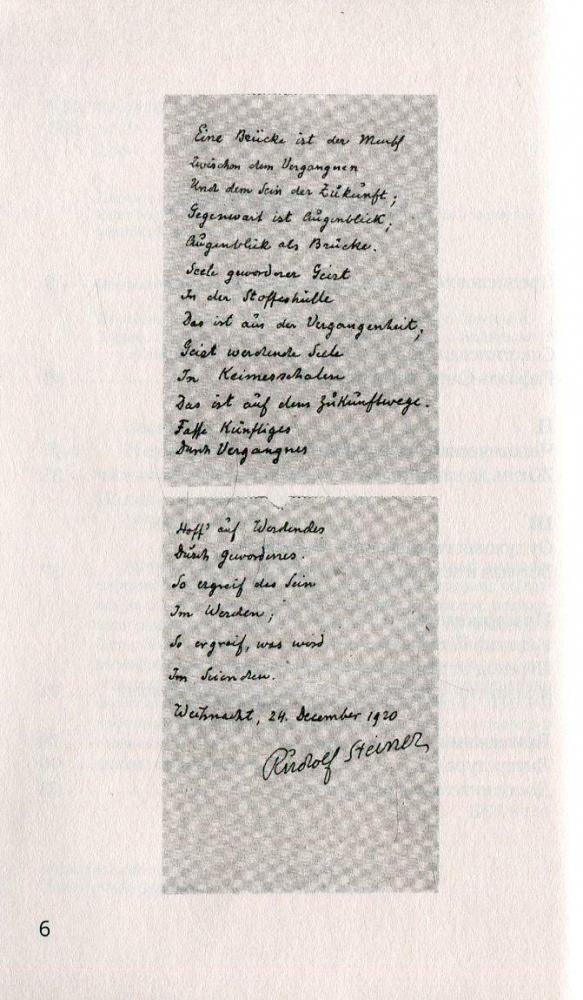 Eine Brücke ist der Mensch
Zwischen dem Vergangnen
Und dem Sein der Zukunft;
Gegenwart ist Augenblick;
Augenblick als Brücke.
Seele gewordner Geist
In der Stoffeshülle
Das ist aus der Vergangenheit;
Geist werdende Seele
In Keimesschalen
Das ist auf dem Zukunftwege.
Fasse Künftiges
Durch Vergangnes
Hoff' auf Werdendes
Durch Gewordenes.
So ergreif das Sein
Im Werden;
So ergreif, was wird
Im Seienden.
Weihnacht, 24. December 1920
Rudolf Steiner
6